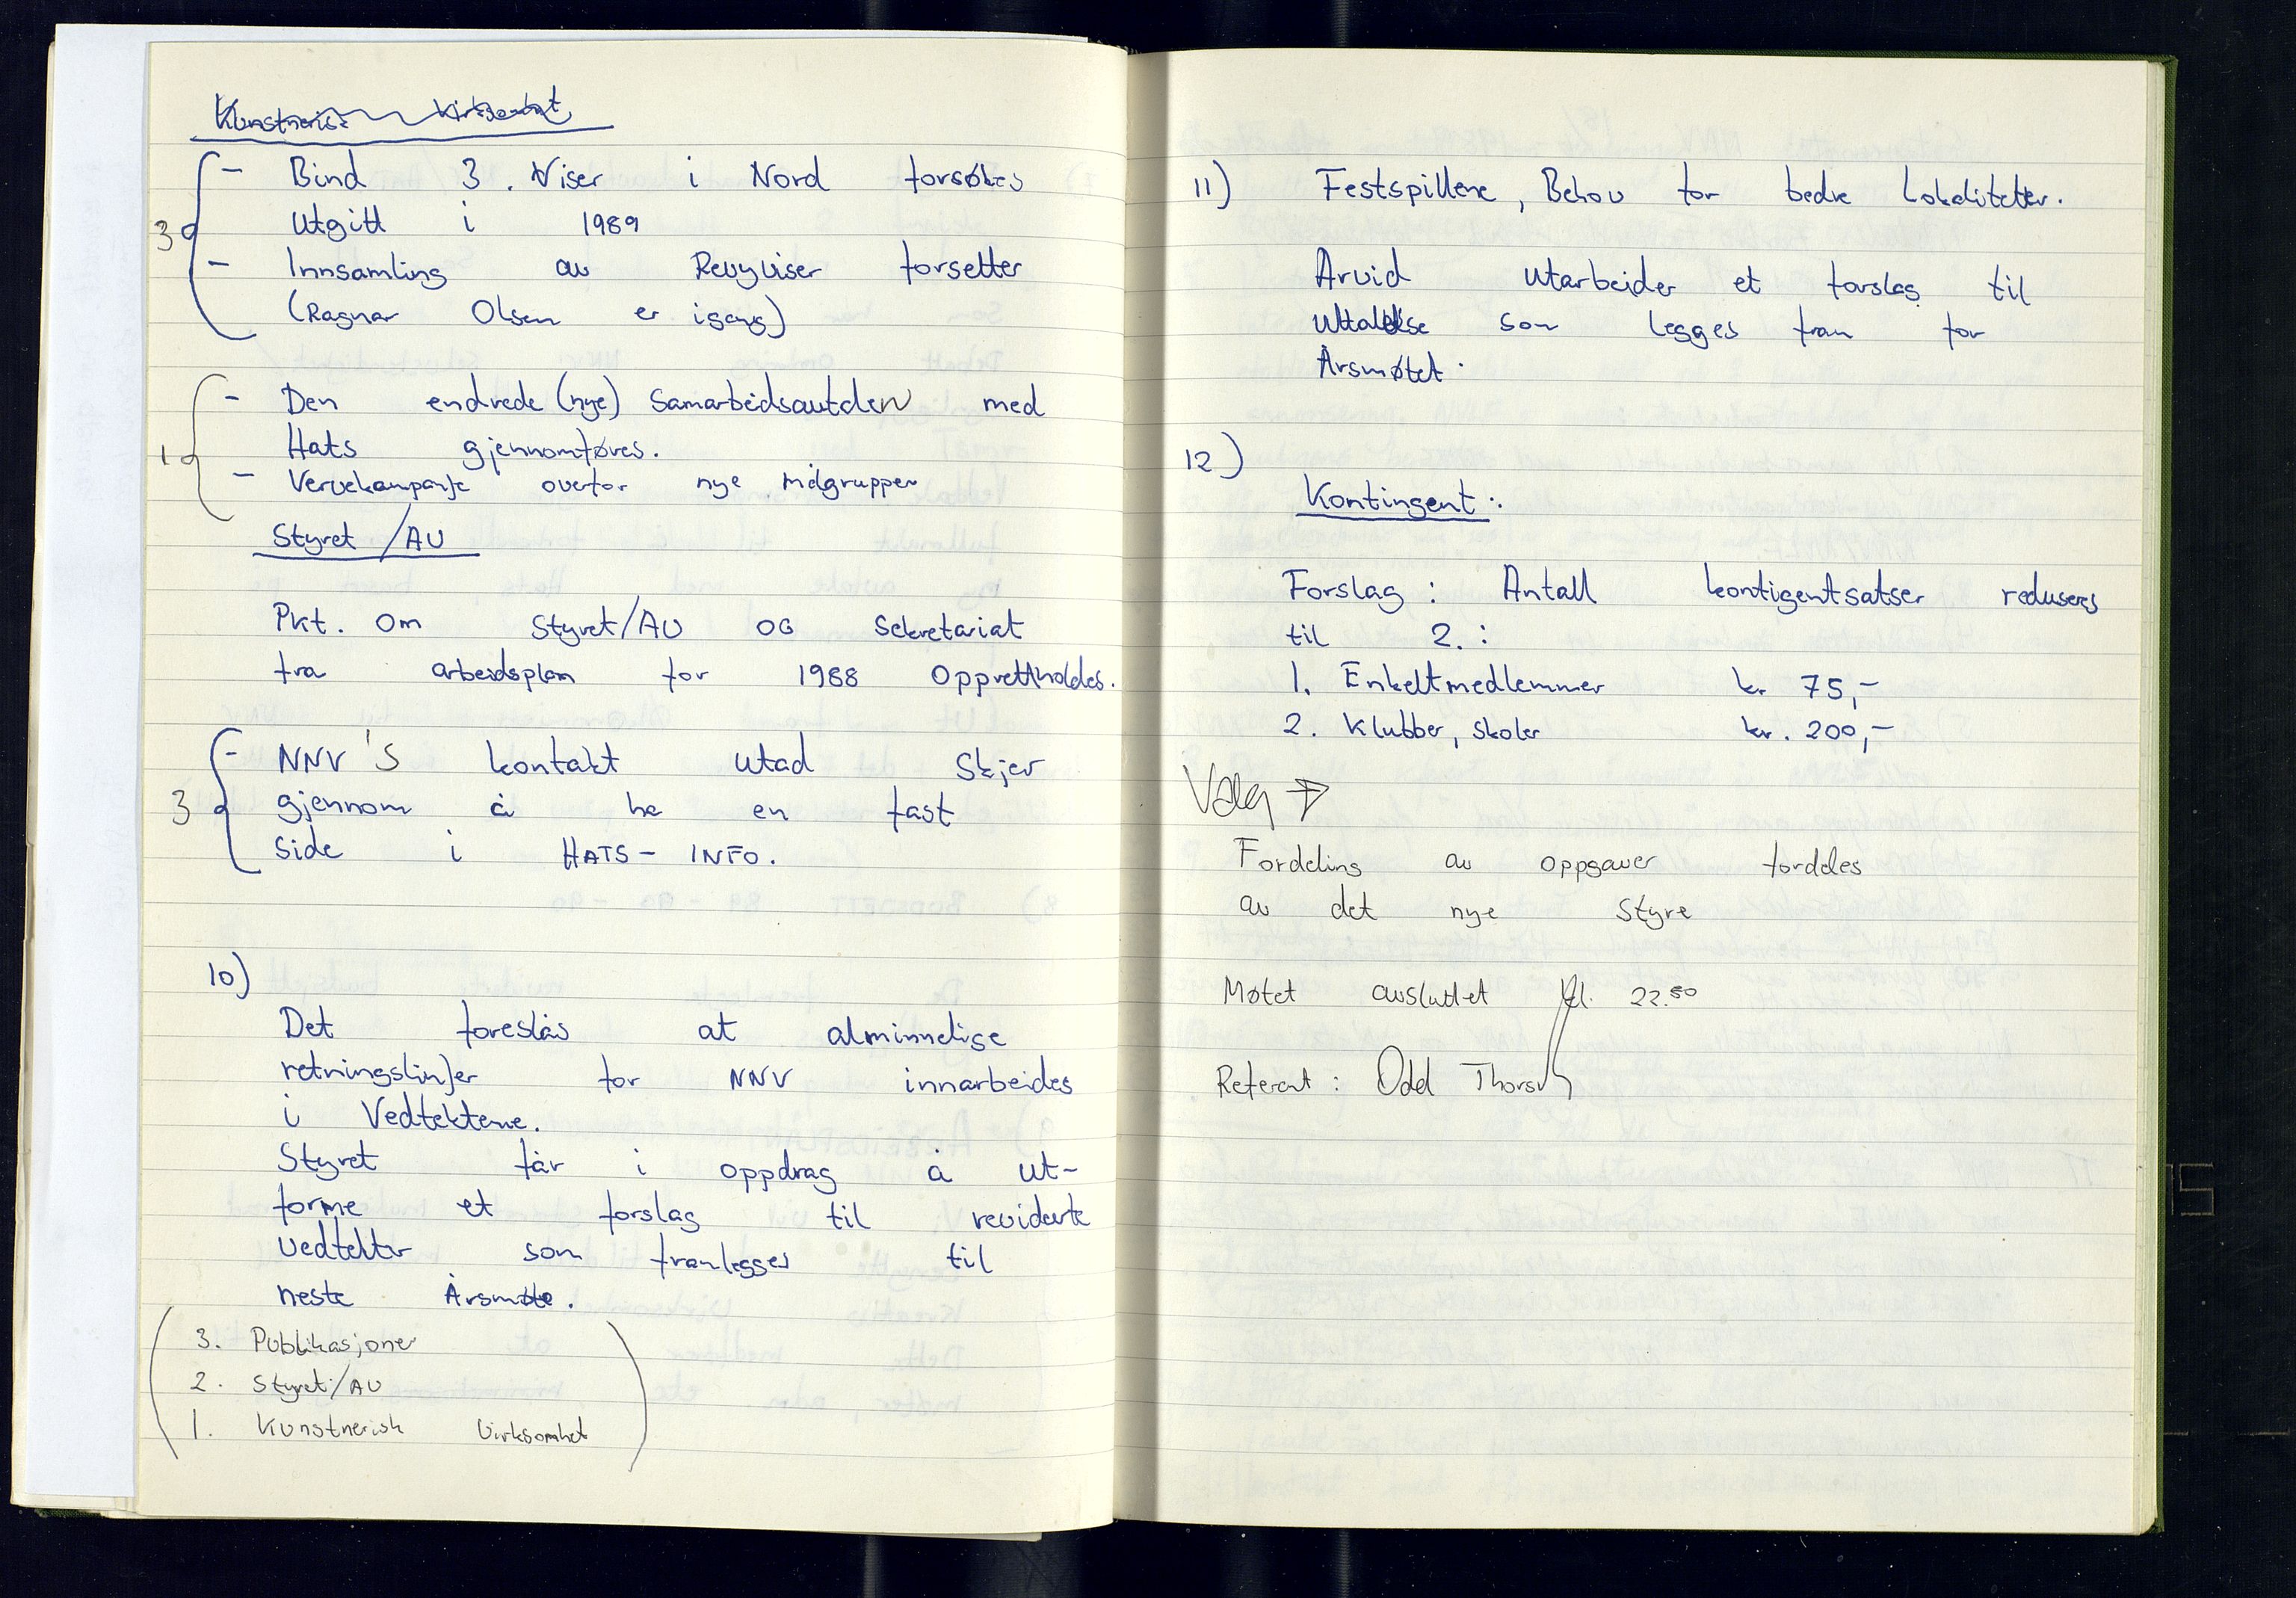 Kunstnerisk Virksomhet
- Bind 3. Viser i Nord forsøkes
3 Utgitt i 1989
- Innsamling av Revyviser forsetter
(Ragnar Olsen er igang)
- Den endrede (nye) Samarbeidsavtalen med
1 Hats gjennomføres.
- Vervekampanje overfor nye målgrupper
Styret/AU
Pkt. Om Styret/AU OG Sekretariat
fra arbeidsplan for 1988 Opprettholdes.
- NNV'S kontakt utad Skjer
3 gjennom å ha en fast
Side i HATS-INFO.
10)
Det foreslås at alminnelige
retningslinjer for NNV innarbeides
i Vedtektene.
Styret får i oppdrag å ut-
forme et forslag til reviderte
Vedtekter som framlegges til
neste Årsmøte.
3. Publikasjoner
2. Styret/AU
1. Kunstnerisk Virksomhet
11) Festspillene, Behov for bedre Lokaliteter.
Arvid Utarbeider et forslag til
Uttalelse som legges fram for
Årsmøtet.
12)
Kontingent:
Forslag: Antall kontigentsatser reduseres
til 2.:
1. Enkeltmedlemmer kr 75,-
2. Klubber, Skoler kr. 200,-
Valg →
Fordeling av oppgaver fordeles
av det nye Styre
Møtet avsluttet kl. 22.50
Referent: Odd